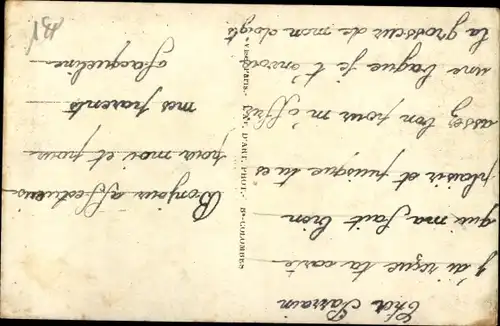 Cher Parrain
J'ai reçue ta carte
qui ma fait bien
plaisir et puisque tu es
assez bon pour m'offrir
une bague je t'envoie
la grosseur de mon doigts
Bonjour affectueux
pour moi et pour
mes parents
Jacqueline
D'ART PHOT. - Bs-COLOMBES